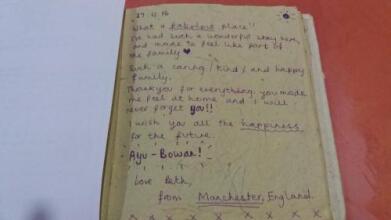 27.11.16
What a fabulous place!!
I've had such a wonderful stay here,
and made to feel like part of
the family ♥
Such a caring/kind/and happy
family.
Thankyou for everything. you made
me feel at home and I will
never forget you!!
I wish you all the happiness
for the future.
Ayu-Bowan!
Love Beth,
from Manchester, England.
x x x x x x x x